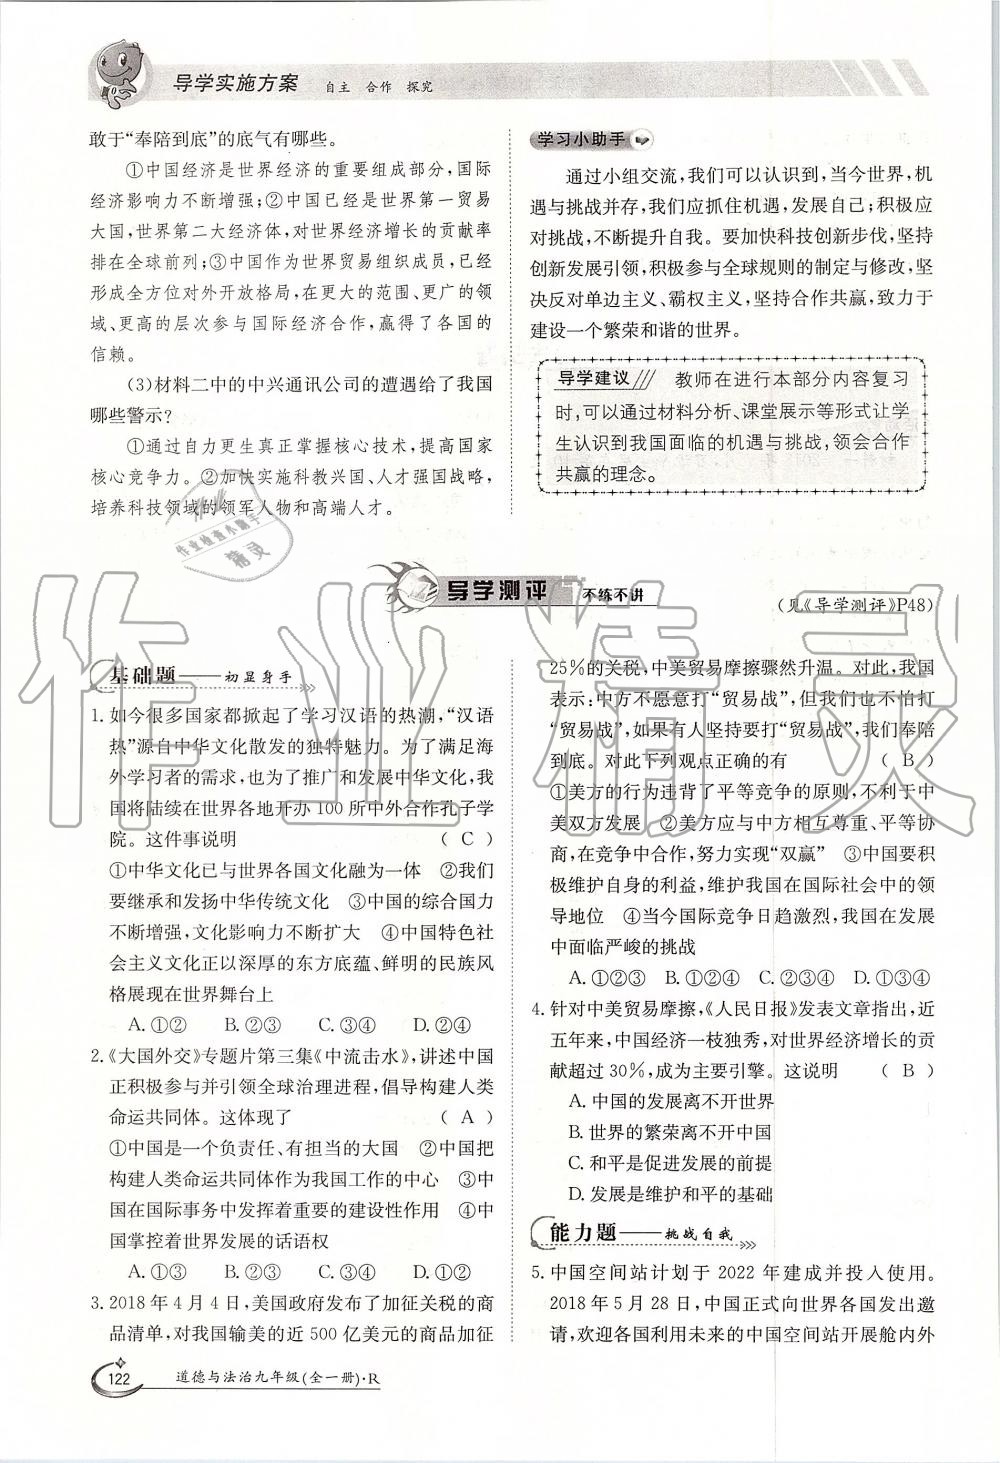 导学实施方案 自主 合作 探究
敢于“奉陪到底”的底气有哪些。
①中国经济是世界经济的重要组成部分,国际
经济影响力不断增强;②中国已经是世界第一贸易
大国,世界第二大经济体,对世界经济增长的贡献率
排在全球前列;③中国作为世界贸易组织成员,已经
形成全方位对外开放格局,在更大的范围、更广的领
域、更高的层次参与国际经济合作,赢得了各国的
信赖。
(3)材料二中的中兴通讯公司的遭遇给了我国
哪些警示?
①通过自力更生真正掌握核心技术,提高国家
核心竞争力。②加快实施科教兴国、人才强国战略,
培养科技领域的领军人物和高端人才。
学习小助手
通过小组交流,我们可以认识到,当今世界,机
遇与挑战并存,我们应抓住机遇,发展自己;积极应
对挑战,不断提升自我。要加快科技创新步伐,坚持
创新发展引领,积极参与全球规则的制定与修改,坚
决反对单边主义、霸权主义,坚持合作共赢,致力于
建设一个繁荣和谐的世界。
导学建议 教师在进行本部分内容复习
时,可以通过材料分析、课堂展示等形式让学
生认识到我国面临的机遇与挑战,领会合作
共赢的理念。
作业检查小助手
精灵
作业精灵
导学测评 不练不讲
(见《导学测评》P48)
基础题——初显身手
1. 如今很多国家都掀起了学习汉语的热潮,“汉语
热”源自中华文化散发的独特魅力。为了满足海
外学习者的需求,也为了推广和发展中华文化,我
国将陆续在世界各地开办 100 所中外合作孔子学
院。这件事说明 ( C )
①中华文化已与世界各国文化融为一体 ②我们
要继承和发扬中华传统文化 ③中国的综合国力
不断增强,文化影响力不断扩大 ④中国特色社
会主义文化正以深厚的东方底蕴、鲜明的民族风
格展现在世界舞台上
A. ①② B. ②③ C. ③④ D. ②④
2. 《大国外交》专题片第三集《中流击水》,讲述中国
正积极参与并引领全球治理进程,倡导构建人类
命运共同体。这体现了 ( A )
①中国是一个负责任、有担当的大国 ②中国把
构建人类命运共同体作为我国工作的中心 ③中
国在国际事务中发挥着重要的建设性作用 ④中
国掌控着世界发展的话语权
A. ①③ B. ②③ C. ③④ D. ①②
3. 2018 年 4 月 4 日,美国政府发布了加征关税的商
品清单,对我国输美的近 500 亿美元的商品加征
25%的关税,中美贸易摩擦骤然升温。对此,我国
表示:中方不愿意打“贸易战”,但我们也不怕打
“贸易战”,如果有人坚持要打“贸易战”,我们奉陪
到底。对此下列观点正确的有 ( B )
①美方的行为违背了平等竞争的原则,不利于中
美双方发展 ②美方应与中方相互尊重、平等协
商,在竞争中合作,努力实现“双赢” ③中国要积
极维护自身的利益,维护我国在国际社会中的领
导地位 ④当今国际竞争日趋激烈,我国在发展
中面临严峻的挑战
A. ①②③ B. ①②④ C. ②③④ D. ①③④
4. 针对中美贸易摩擦,《人民日报》发表文章指出,近
五年来,中国经济一枝独秀,对世界经济增长的贡
献超过 30%,成为主要引擎。这说明 ( B )
A. 中国的发展离不开世界
B. 世界的繁荣离不开中国
C. 和平是促进发展的前提
D. 发展是维护和平的基础
能力题——挑战自我
5. 中国空间站计划于 2022 年建成并投入使用。
2018 年 5 月 28 日,中国正式向世界各国发出邀
请,欢迎各国利用未来的中国空间站开展舱内外
122 道德与法治九年级(全一册)·R